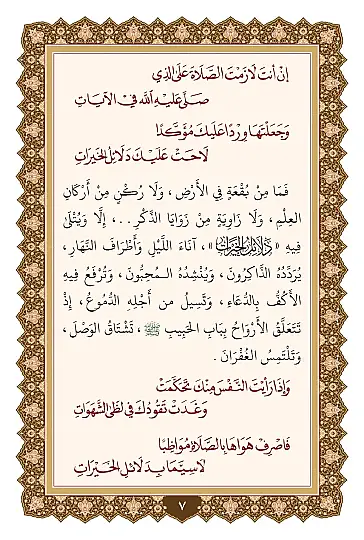 إِنْ أَنتَ لَازَمْتَ الصَّلَاةَ عَلَى الَّذِي
صَلَّى عَلَيْهِ اللَّهُ فِي الْآيَاتِ
وَجَعَلْتَهَا وِرْدًا عَلَيْكَ مُؤَكَّدًا
لَاحَتْ عَلَيْكَ دَلَائِلُ الْخَيْرَاتِ
فَمَا مِنْ بُقْعَةٍ فِي الْأَرْضِ ، وَلَا رُكْنٍ مِنْ أَرْكَانِ
الْعِلْمِ، وَلَا زَاوِيَةٍ مِنْ زَوَايَا الذِّكْرِ..، إِلَّا وَيُتْلَى
فِيهِ «دَلَائِلُ الْخَيْرَاتِ»، آنَاءَ اللَّيْلِ وَأَطْرَافَ النَّهَارِ،
يُرَدِّدُهُ الذَّاكِرُونَ، وَيُنْشِدُهُ الْـمُحِبُّونَ، وَتُرْفَعُ فِيهِ
الْأَكُفُّ بِالدُّعَاءِ، وَتَسِيلُ من أَجْلِهِ الدُّمُوعُ، إِذْ
تَتَعَلَّقُ الْأَرْوَاحُ بِبَابِ الْحَبِيبِ ﷺ، تَشْتَاقُ الْوَصْلَ،
وَتَلْتَمِسُ الْغُفْرَانَ.
وَإِذَا رَأَيْتَ النَّفْسَ مِنْكَ تَحَكَّمَتْ
وَغَدَتْ تَقُودُكَ فِي لَظَى الشَّهَوَاتِ
فَاصْرِفْ هَوَاهَا بِالصَّلَاةِ مُوَاظِبًا
لَا سِيَّمَا بِدَلَائِلِ الْخَيْرَاتِ
٧